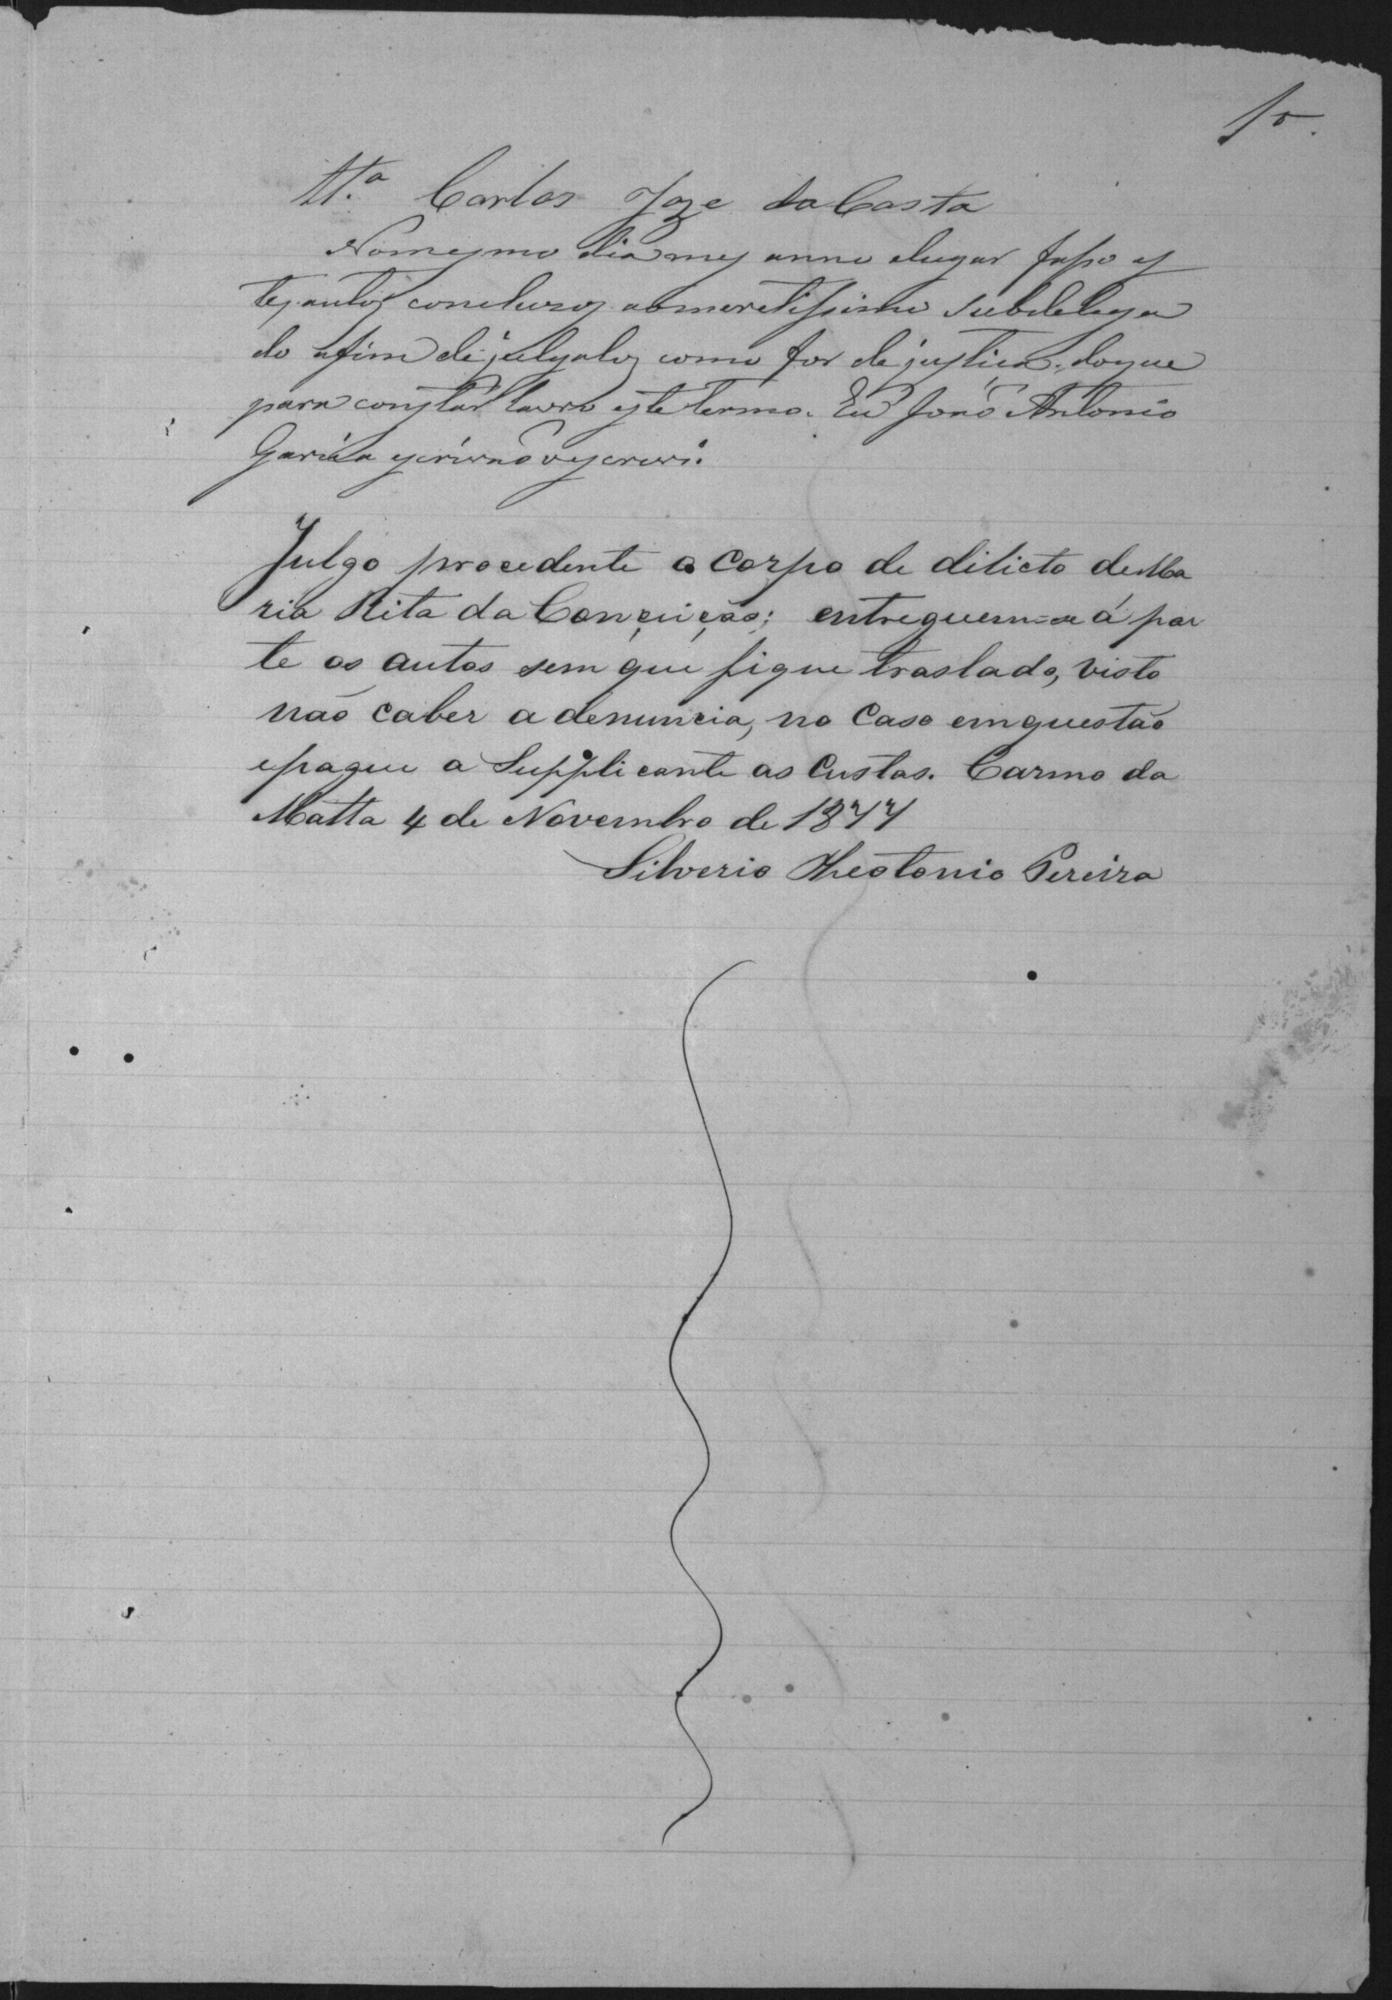 10.
Tt.ª Carlos Joze da Costa
Nomesmo dia mes anno elugar faço es
tes autos concluzos aomeretissimo Subdelega
do afim de julgalos como for de justica; doque
para constar lavro este termo. Eu João Antonio
Garcia escrivão oescrevi.
Julgo procedente o corpo de dilicto de Ma
ria Rita da Conceição; entreguem-se á par
te os autos sem que fique traslado, visto
não caber a denuncia, no caso emquestão
epague a Supplicante as custas. Carmo da
Matta 4 de Novembro de 1877
Silverio Theotonio Pereira